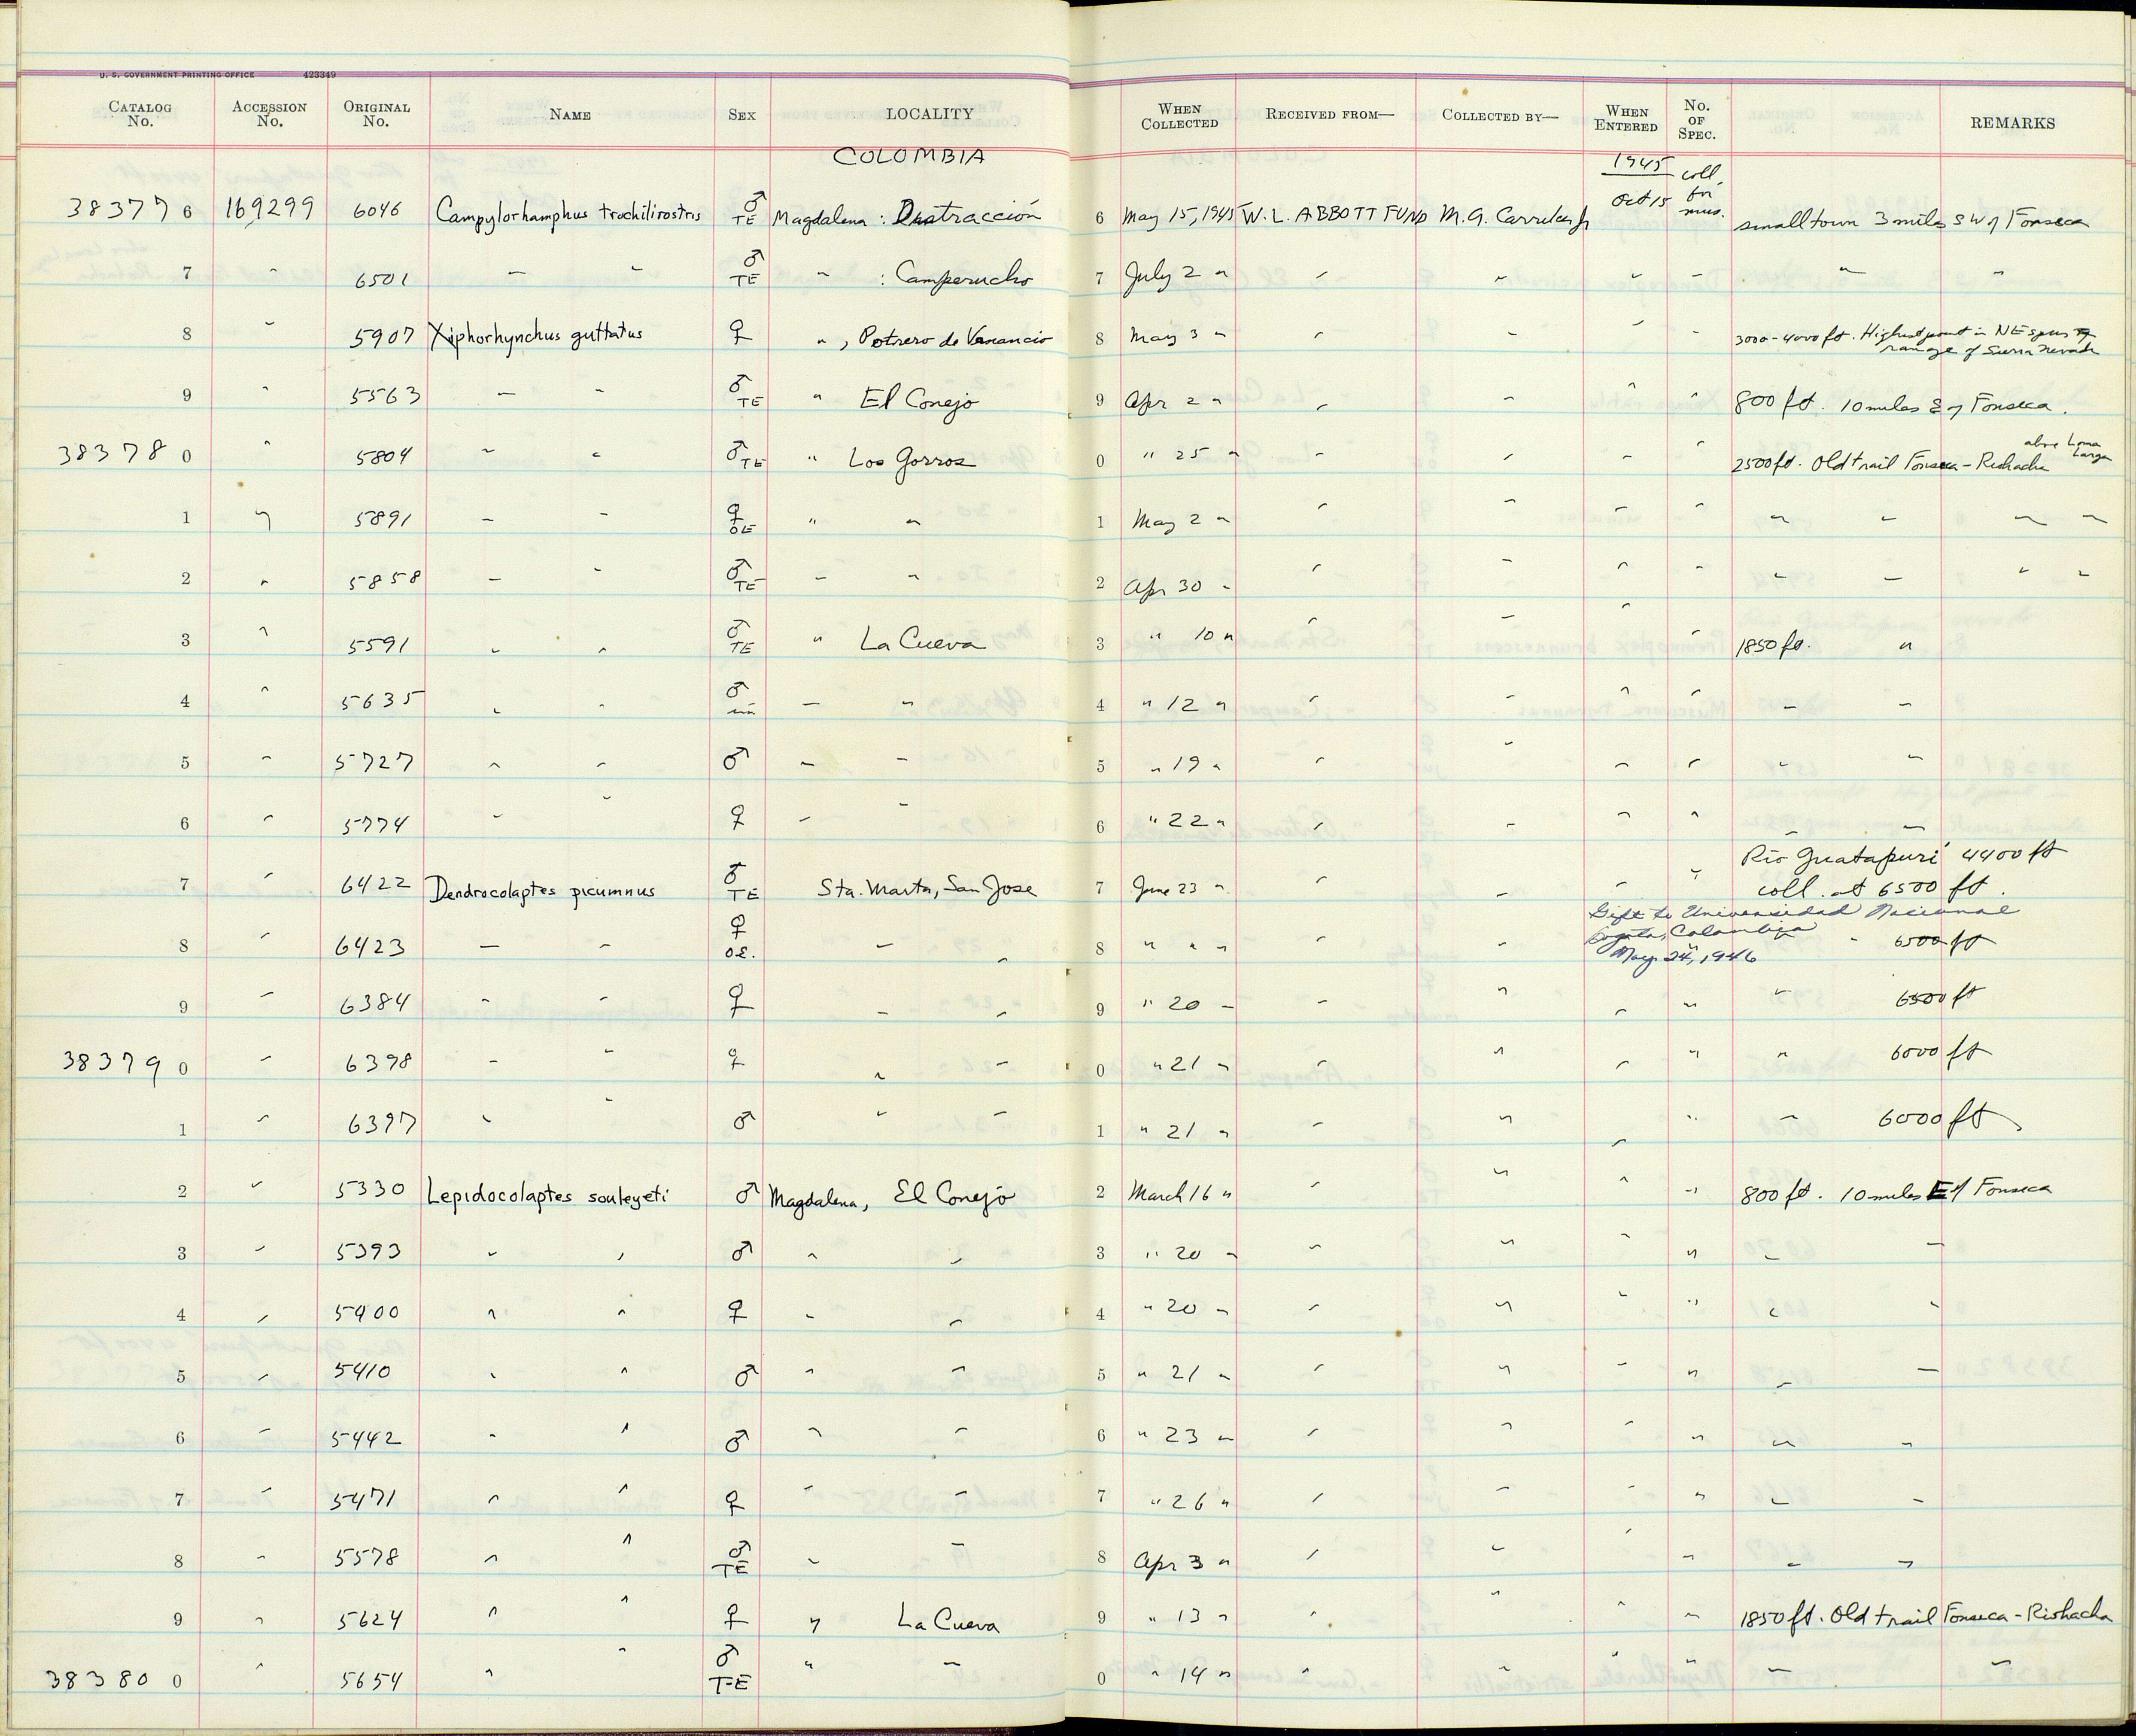 U. S. GOVERNMENT PRINTING OFFICE 423349
CATALOG No. ACCESSION No. ORIGINAL No. NAME SEX LOCALITY WHEN COLLECTED RECEIVED FROM— COLLECTED BY— WHEN ENTERED No. OF SPEC. REMARKS
COLOMBIA 1945 coll. for mus.
38377 6 169299 6046 Campylorhamphus trochilirostris ♂ TE Magdalena : Distracción 6 May 15, 1945 W. L. ABBOTT FUND M. A. Carriker Jr Oct 15 small town 3 miles SW of Fonseca
7 " 6501 " " ♂ TE " : Camperucho 7 July 2 " " " " " " "
8 " 5907 Xiphorhynchus guttatus ♀ " , Potrero de Venancio 8 May 3 " " " " " 3000-4000 ft. Highest point in NE spur of range of Sierra Nevada
9 " 5563 " " ♂ TE " El Conejo 9 Apr 2 " " " " " 800 ft. 10 miles E of Fonseca.
38378 0 " 5804 " " ♂ TE " Los Gorros 0 " 25 " " " " " 2500 ft. Old trail Fonseca - Riohacha above Loma Larga
1 " 5891 " " ♀ OE " " 1 May 2 " " " " " " " " "
2 " 5858 " " ♂ TE " " 2 Apr 30 " " " " " " " " "
3 " 5591 " " ♂ TE " La Cueva 3 " 10 " " " " " 1850 ft. "
4 " 5635 " " ♂ im " " 4 " 12 " " " " " " "
5 " 5727 " " ♂ " " 5 " 19 " " " " " " "
6 " 5774 " " ♀ " " 6 " 22 " " " " " " "
7 " 6422 Dendrocolaptes picumnus ♂ TE Sta. Marta, San Jose 7 June 23 " " " " " Rio Guatapuri 4400 ft
coll. at 6500 ft.
8 " 6423 " " ♀ OE. " " 8 " " " " " Gift to Universidad Nacional
Bogota, Colombia " 6500 ft
May 24, 1946
9 " 6384 " " ♀ " " 9 " 20 " " " " " " 6500 ft
38379 0 " 6398 " " ♀ " " 0 " 21 " " " " " " 6000 ft
1 " 6397 " " ♂ " " 1 " 21 " " " " " " 6000 ft
2 " 5330 Lepidocolaptes souleyeti ♂ Magdalena, El Conejo 2 March 16 " " " " " 800 ft. 10 miles E of Fonseca
3 " 5393 " " ♂ " " 3 " 20 " " " " " " "
4 " 5400 " " ♀ " " 4 " 20 " " " " " " "
5 " 5410 " " ♂ " " 5 " 21 " " " " " " "
6 " 5442 " " ♂ " " 6 " 23 " " " " " " "
7 " 5471 " " ♀ " " 7 " 26 " " " " " " "
8 " 5578 " " ♂ TE " " 8 Apr 3 " " " " " " "
9 " 5624 " " ♀ " La Cueva 9 " 13 " " " " " 1850 ft. Old trail Fonseca - Riohacha
38380 0 " 5654 " " ♂ TE " " 0 " 14 " " " " " " "